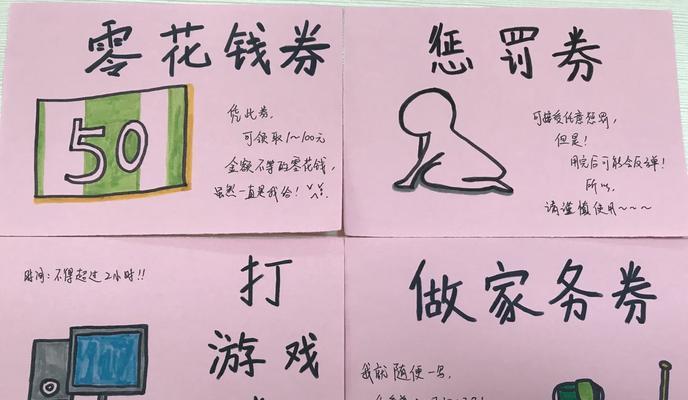 零花钱券
50
凭此券,
可领取1~100元
金额不等的零花钱,
虽然一直是我给!
惩罚券
可接受任意惩罚,
但是!
用完后可能会反弹!
所以,
请谨慎使用~~~
时间:不得超过2小时!!
打
游戏
做家务券
我就随便一写,